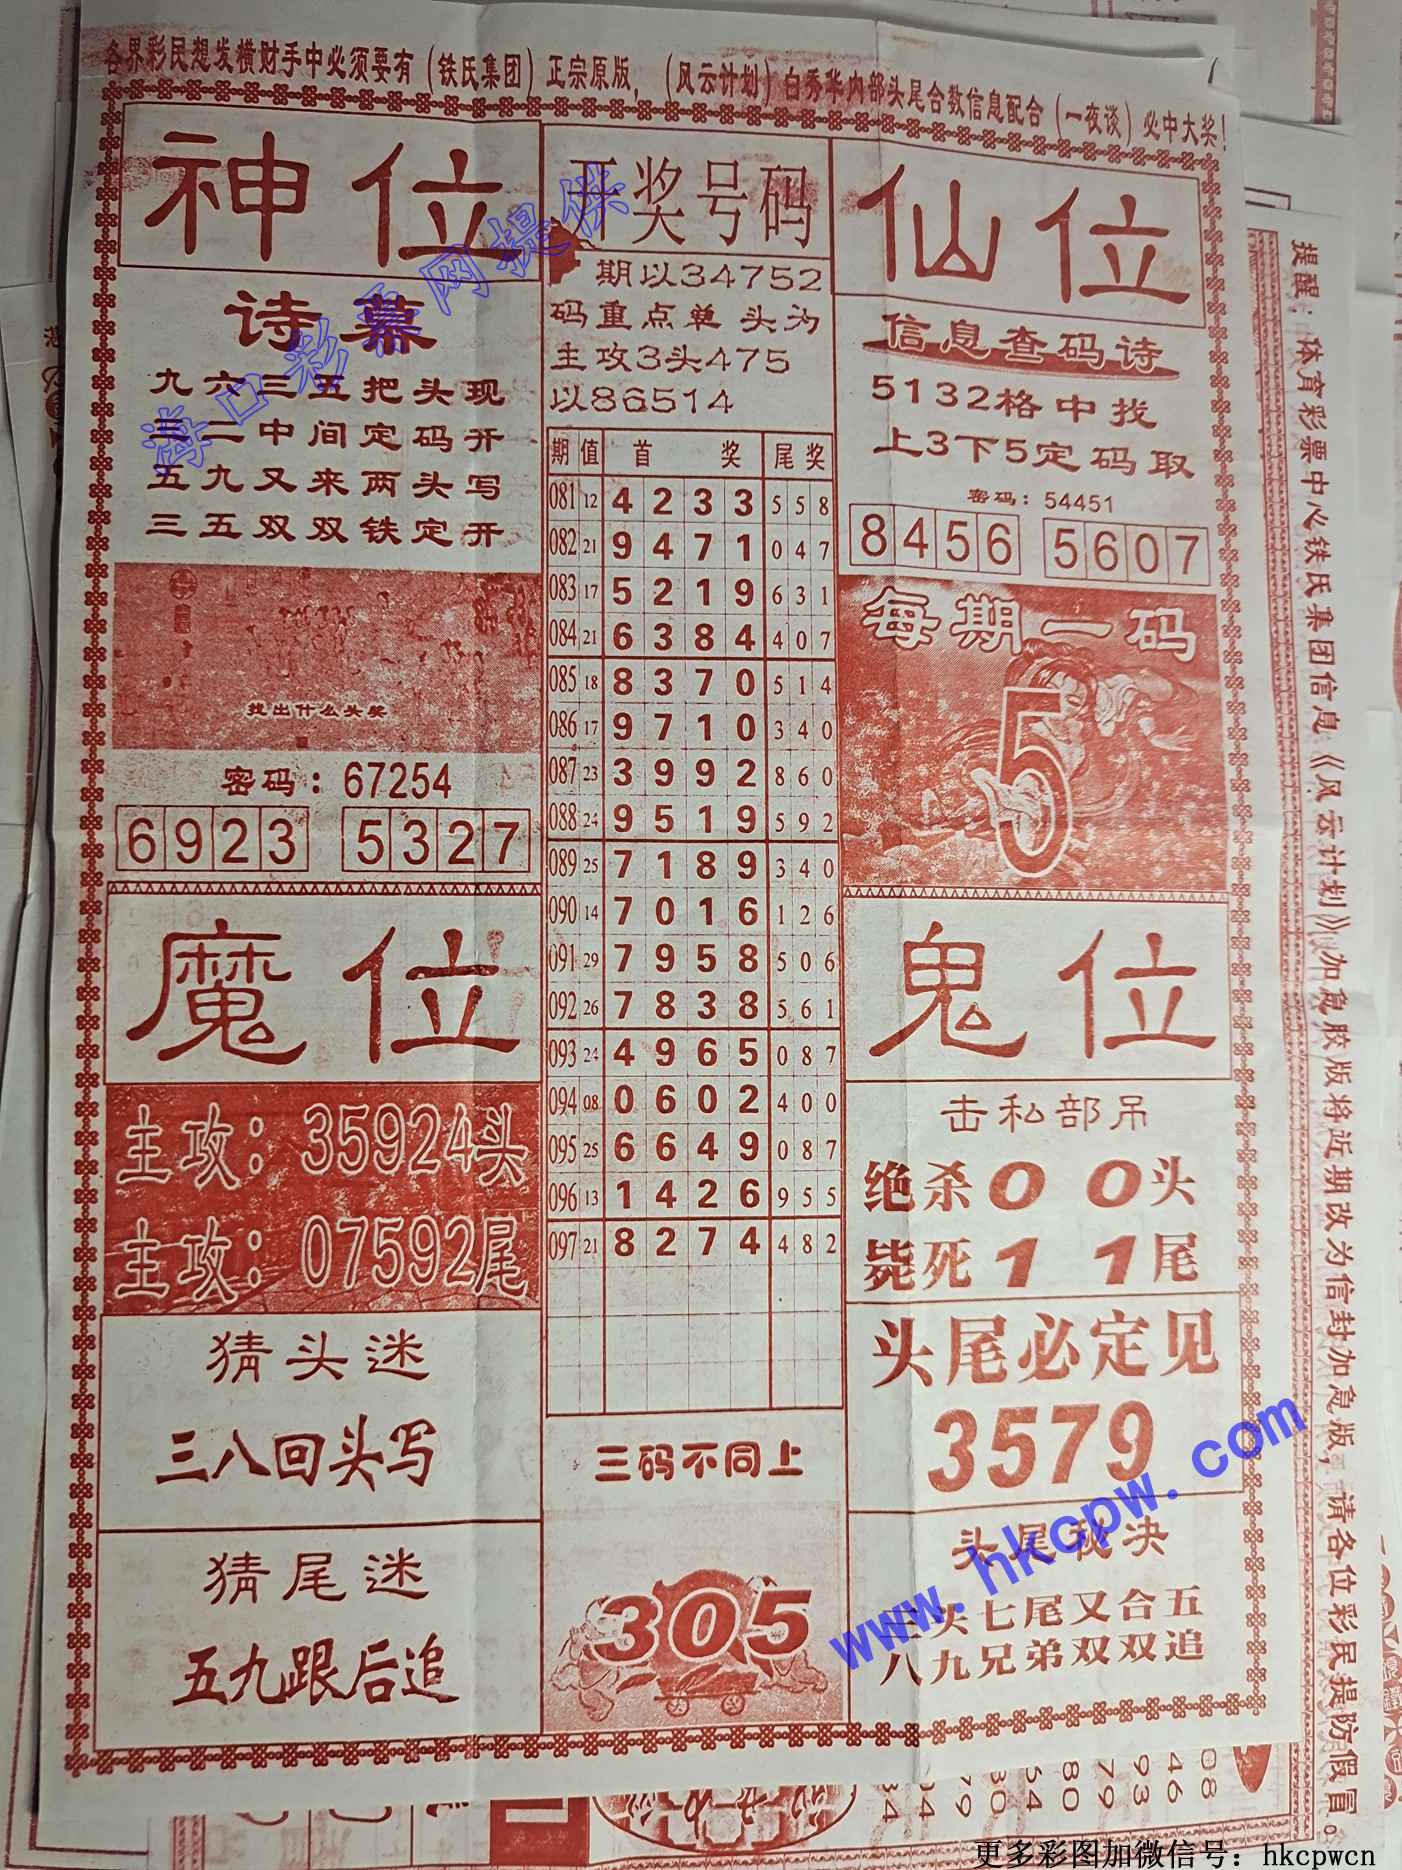 各界彩民想发横财手中必须要有（铁氏集团）正宗原版，（风云计划）白秀华内部头尾合数信息配合（一夜谈）必中大奖！
神位
诗幕
九六三五把头现
三二中间定码开
五九又来两头写
三五双双铁定开
找出什么头奖
密码：67254
6923 5327
开奖号码
期以34752
码重点单 头为
主攻3头475
以86514
期 值 首 奖 尾奖
081 12 4 2 3 3 5 5 8
082 21 9 4 7 1 0 4 7
083 17 5 2 1 9 6 3 1
084 21 6 3 8 4 4 0 7
085 18 8 3 7 0 5 1 4
086 17 9 7 1 0 3 4 0
087 23 3 9 9 2 8 6 0
088 24 9 5 1 9 5 9 2
089 25 7 1 8 9 3 4 0
090 14 7 0 1 6 1 2 6
091 29 7 9 5 8 5 0 6
092 26 7 8 3 8 5 6 1
093 24 4 9 6 5 0 8 7
094 08 0 6 0 2 4 0 0
095 25 6 6 4 9 0 8 7
096 13 1 4 2 6 9 5 5
097 21 8 2 7 4 4 8 2
三码不同上
305
仙位
信息查码诗
5132格中找
上3下5定码取
密码：54451
8456 5607
每期一码
5
魔位
主攻：35924头
主攻：07592尾
猜头迷
三八回头写
猜尾迷
五九跟后追
鬼位
击私部吊
绝杀0 0头
毙死1 1尾
头尾必定见
3579
头尾秘决
三头七尾又合五
八九兄弟双双追
提醒：体育彩票中心铁氏集团信息《风云计划》加急胶版将近期改为信封加急版，请各位彩民提防假冒。
海口彩票网提供
www.hkcpw.com
更多彩图加微信号：hkcpwcn